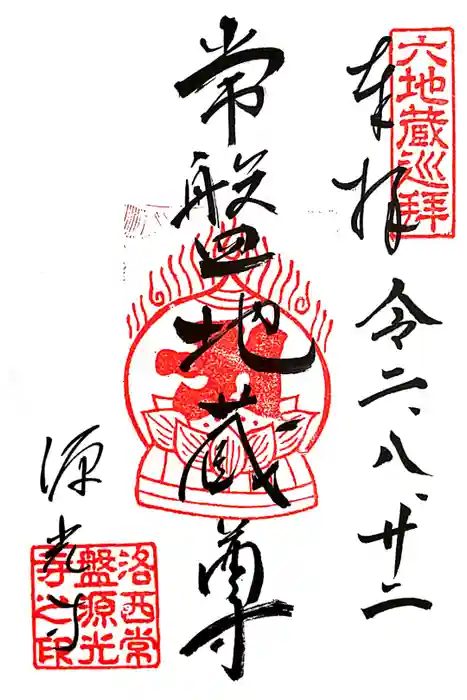 六地蔵巡拝
奉拝 令二、八、廿二
常盤地蔵尊
源光寺
洛西常盤源光寺之印